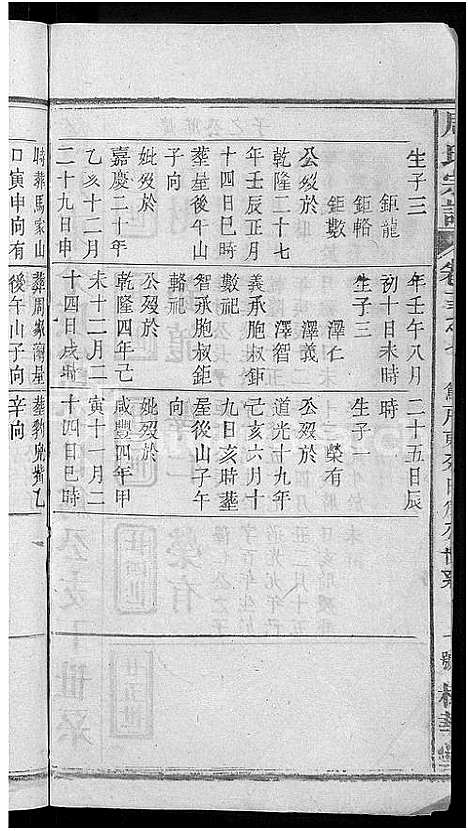 周氏宗譜
生子三
鉅龍
鉅輅
鉅數
公歿於
乾隆二十七
年壬辰正月
十四日巳時
葬屋後午山
子向
妣歿於
嘉慶二十年
乙亥十二月
二十九日申
年壬午八月
初十日未時
生子三
澤仁
澤義
澤智
義承胞叔鉅
數祀
智承胞叔鉅
輅祀
公歿於
乾隆四年己
未十二月二
十四日戌時
二十五日辰
時
生子一
榮有
公歿於
道光十九年
己亥六月十
九日亥時葬
屋後山子午
向
妣歿於
咸豐四年甲
寅十一月二
十四日巳時
時葬馬家山
口寅申向有
葬周嶽灣屋
後午山子向
辛向